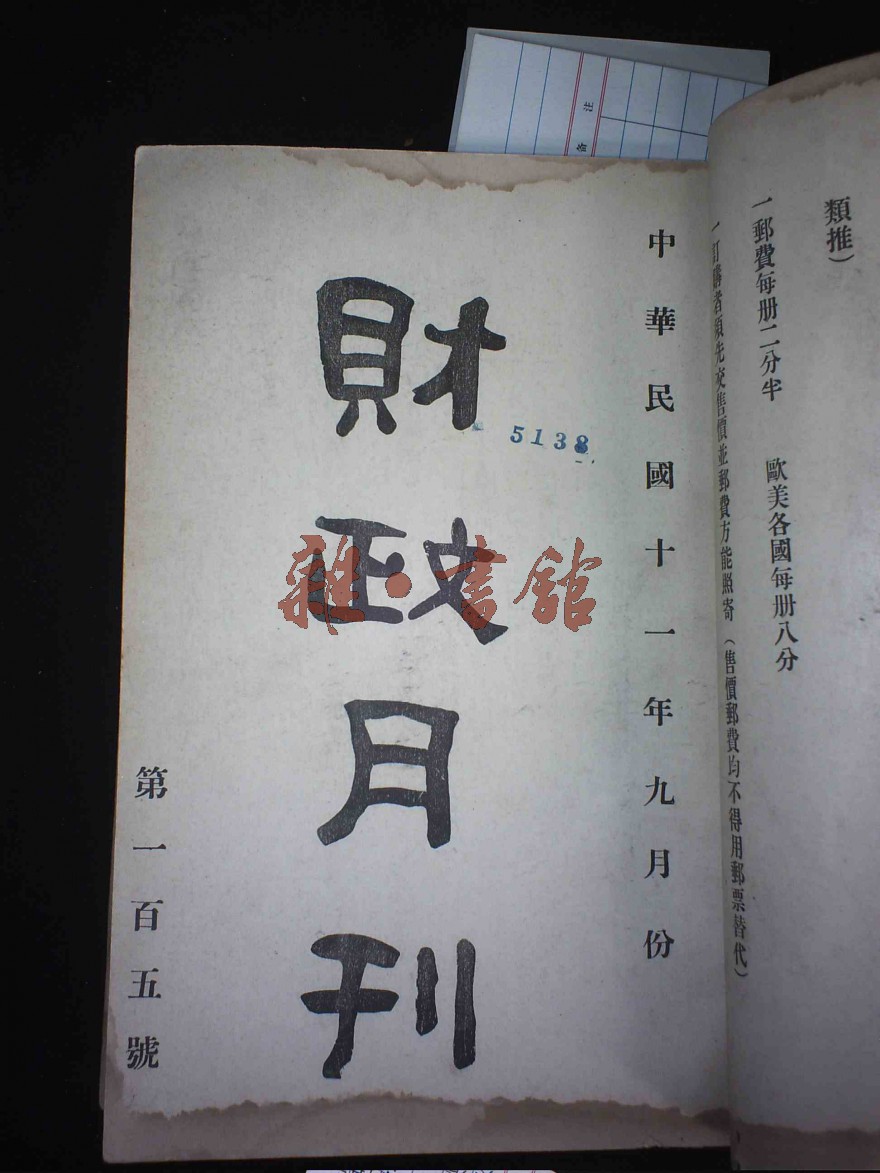 類推）
一郵費每册二分半　歐美各國每册八分
一訂購者須先交售價並郵費方能照寄（售價郵費均不得用郵票替代）
中華民國十一年九月份
財政月刊
第一百五號
5138
雜·書館
备注